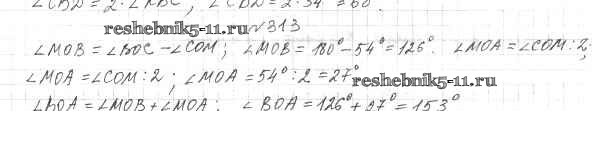 ∠CBD = 2·∠ABC; ∠CBD = 2·34° = 68°.
reshebnik5-11.ru №313
∠MOB = ∠BOC - ∠COM; ∠MOB = 180° - 54° = 126°. ∠MOA = ∠COM : 2;
∠MOA = ∠COM : 2; ∠MOA = 54° : 2 = 27°
reshebnik5-11.ru
∠BOA = ∠MOB + ∠MOA: ∠BOA = 126° + 27° = 153°